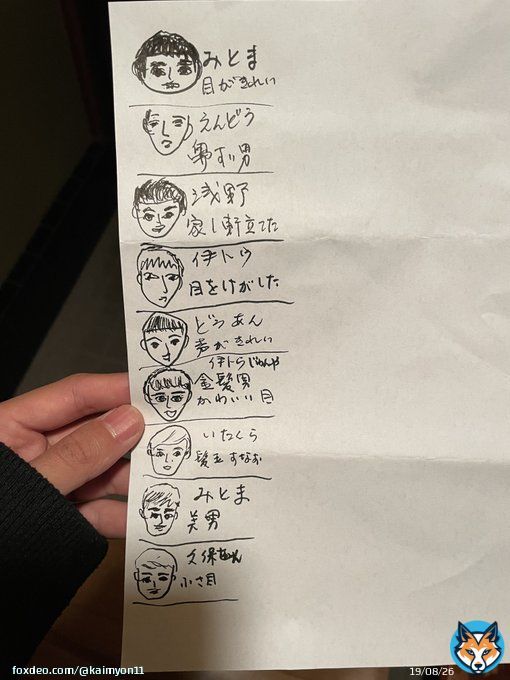 みとま
目がきれい
えんどう
男
浅野
家1軒立てた
伊トウ
目をけがした
どうあん
声がきれい
伊トウじゅんや
金髪男
かわいい目
いたくら
髪
みとま
美男
久保
小さ目
foxdeo.com/@kaimyon11
19/08/26